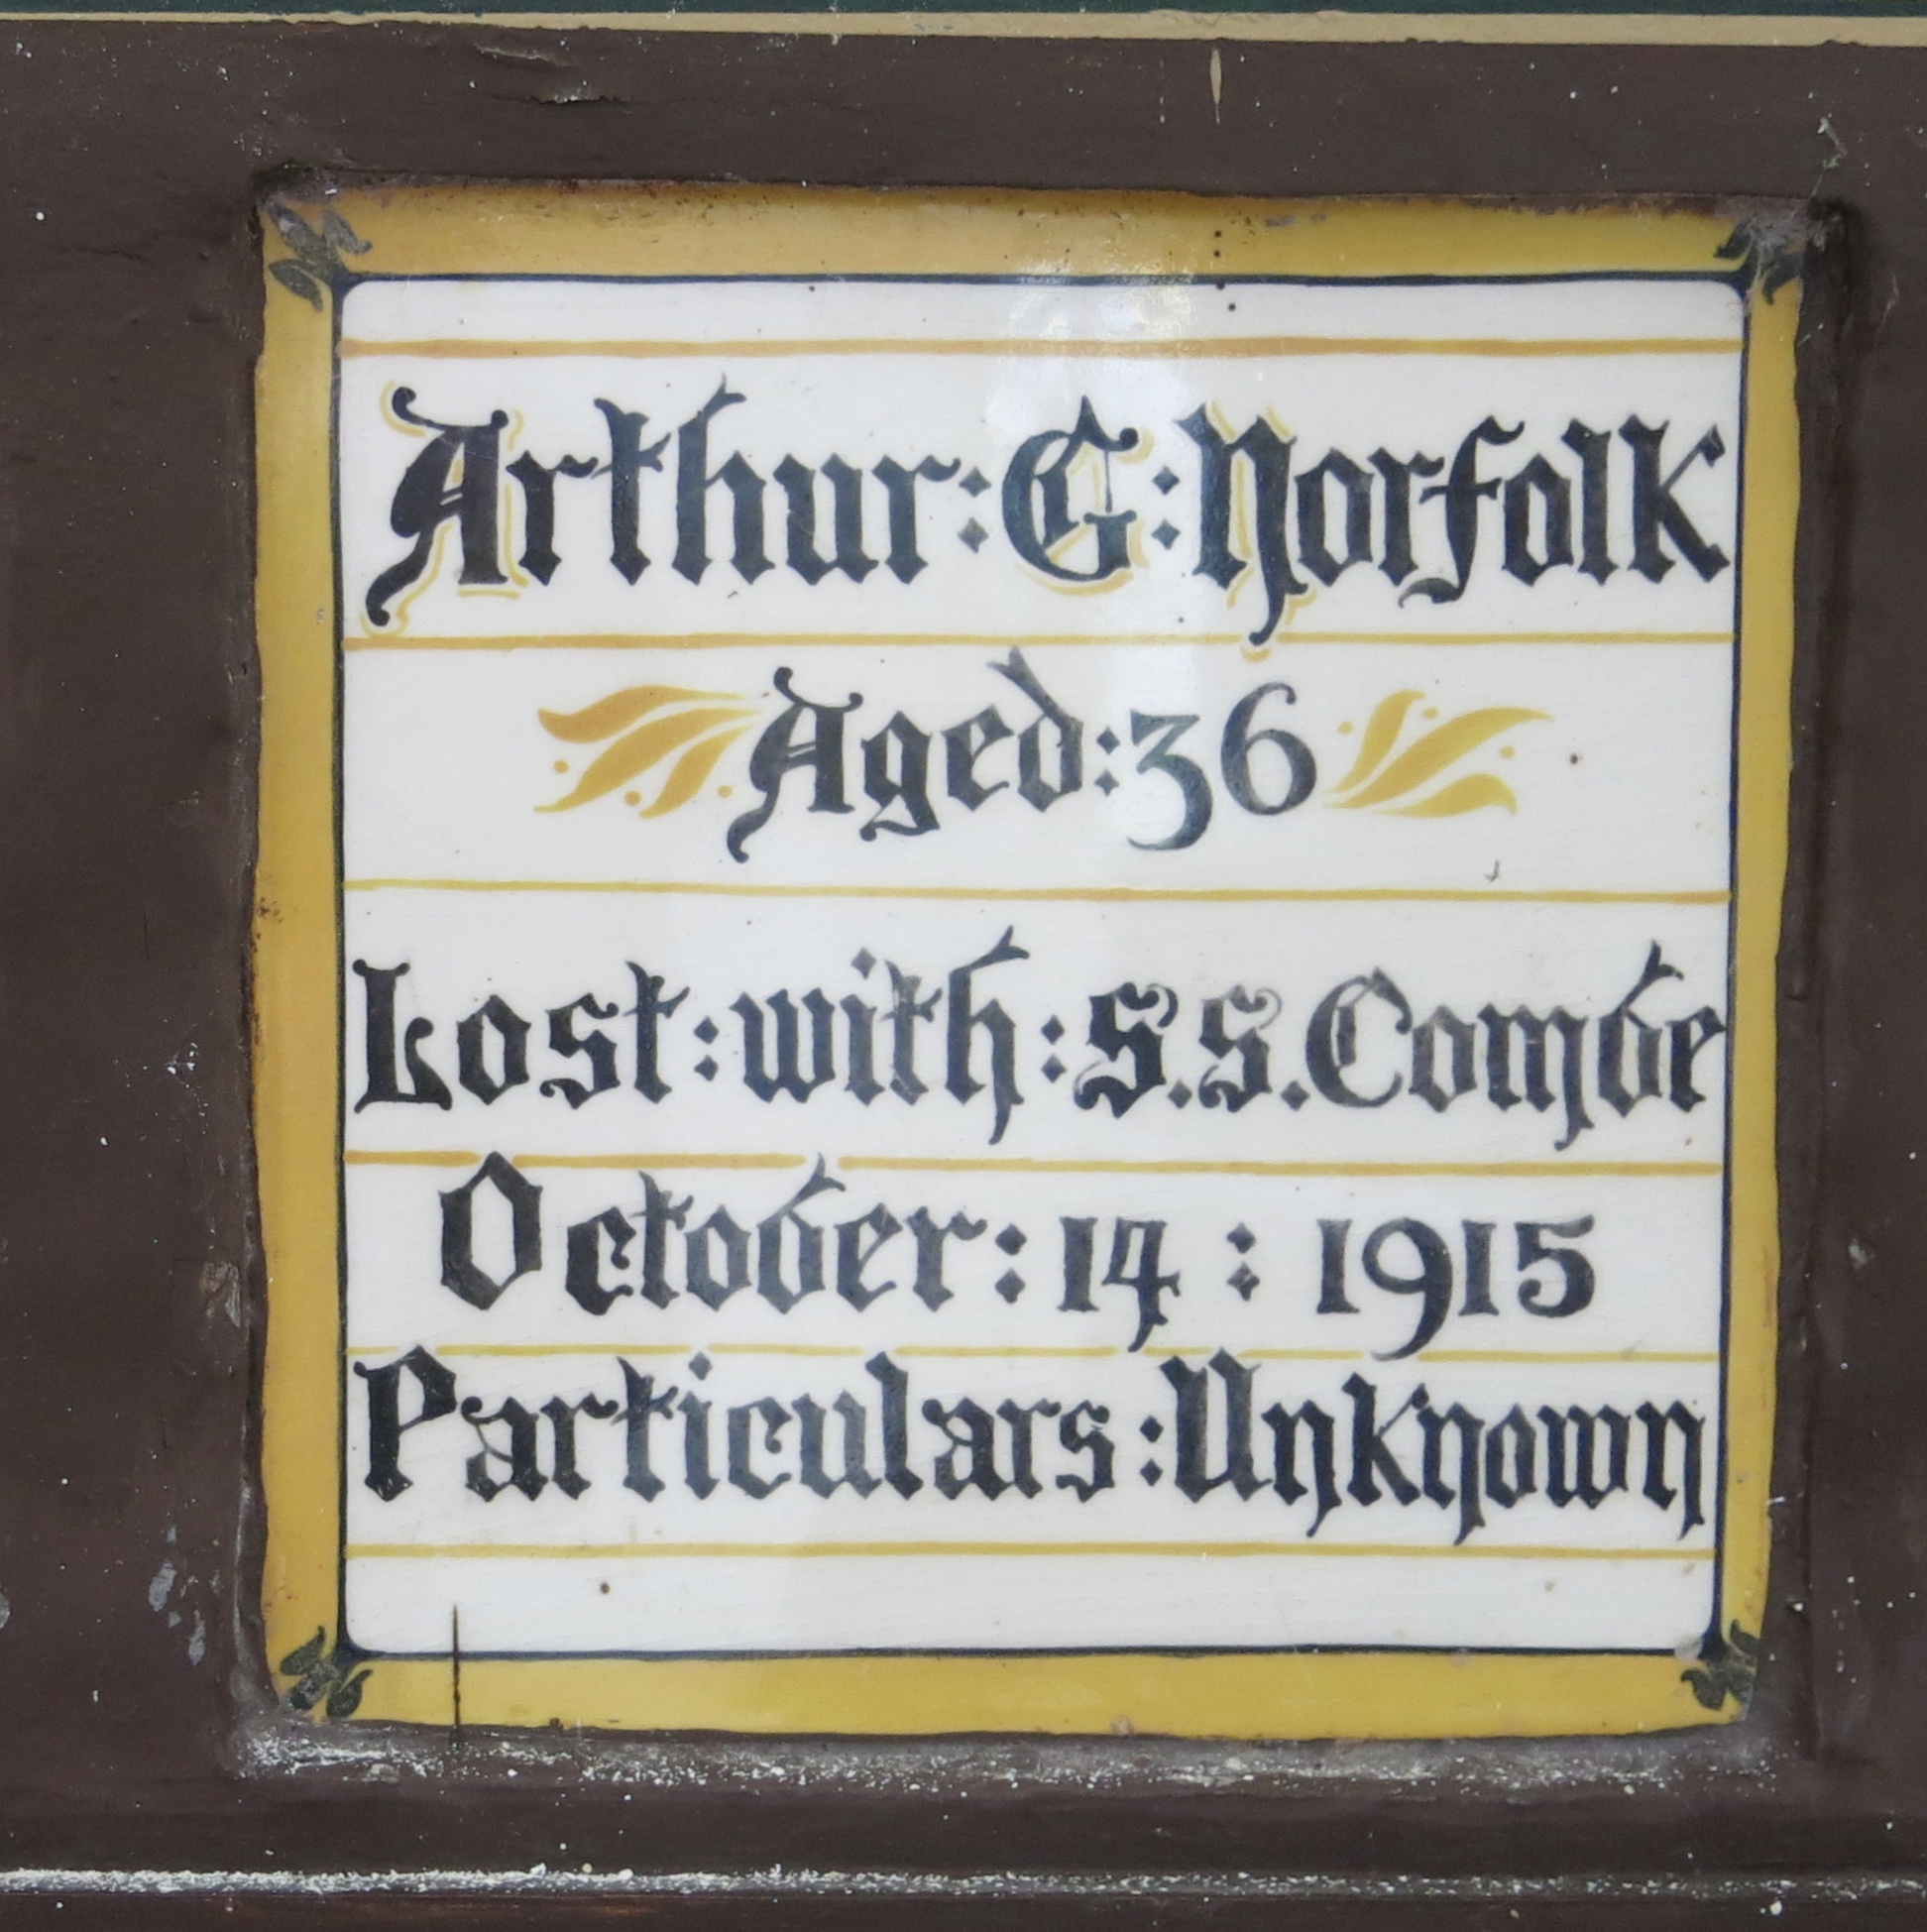 Arthur : G : Norfolk
Aged : 36
Lost : with : S.S. Combe
October : 14 : 1915
Particulars : Unknown